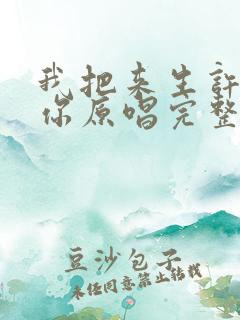 我把来生许
你原唱完整
豆沙包子
未经同意禁止转载